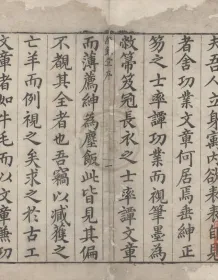 夫吾人立身寓内欲求
者舍功業文章何居焉垂紳正
笏之士率譚功業而視筆墨為
敝帚笈冠長衣之士率譚文章
而薄薦紳為塵飯此皆見其偏
不覩其全者也吾竊以減獲之
亡羊而例視之矣求之於古工
文章者如牛毛而以文章兼功